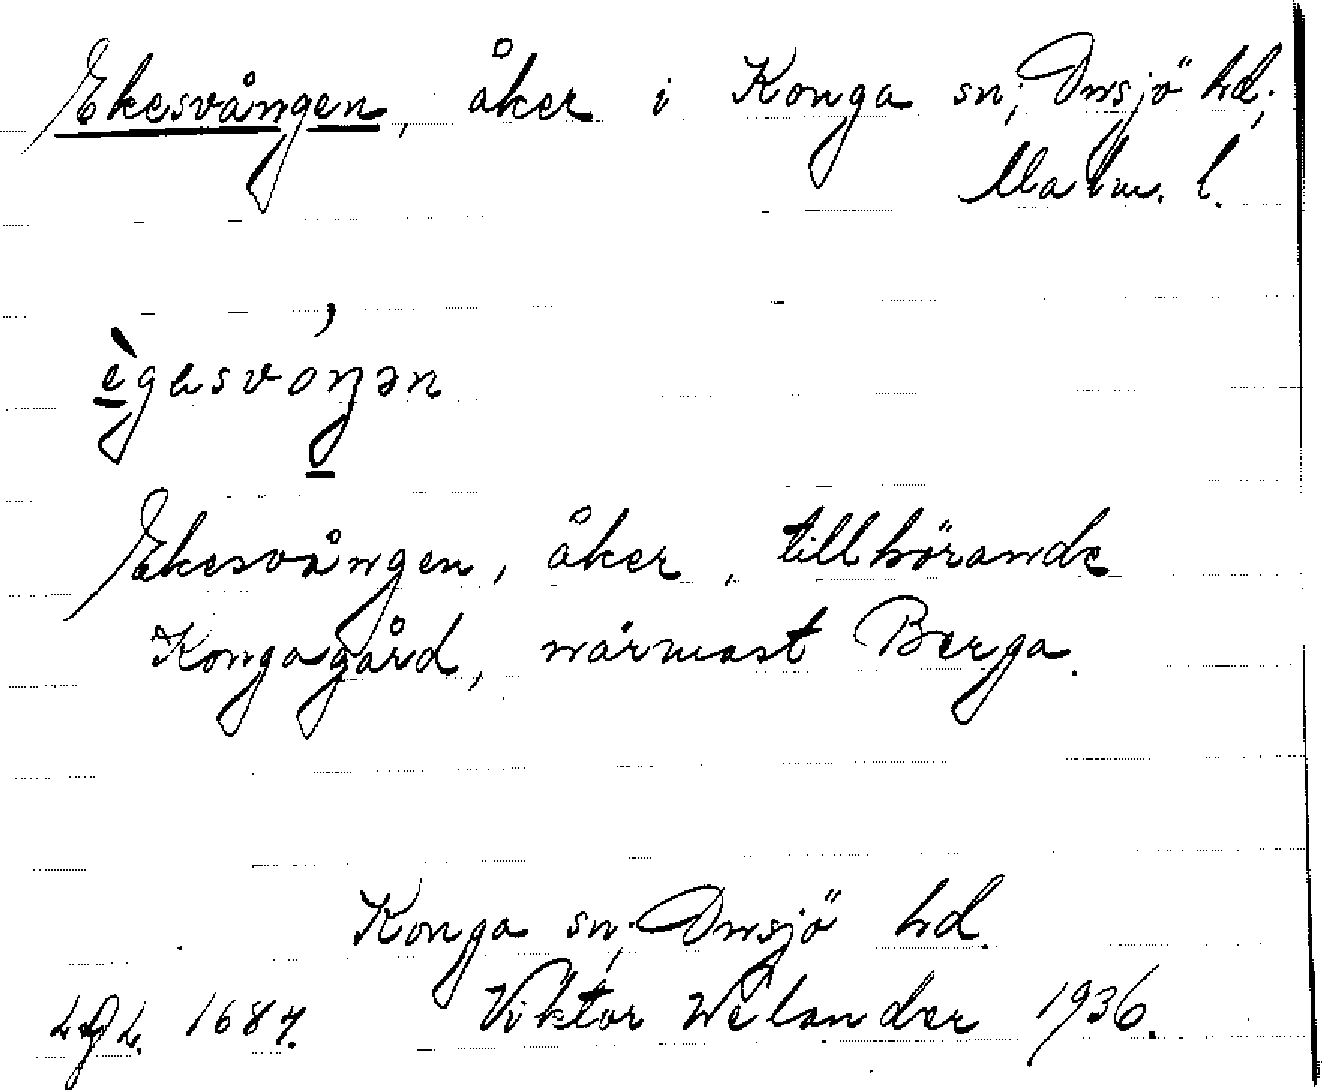 Ekesvången, åker i Konga sn; Onsjö hd;
Malm. l.
ègasvóŋən
Ekesvången, åker, tillhörande
Kongagård, närmast Berga.
Konga sn; Onsjö hd.
1687. Viktor Welander 1936.